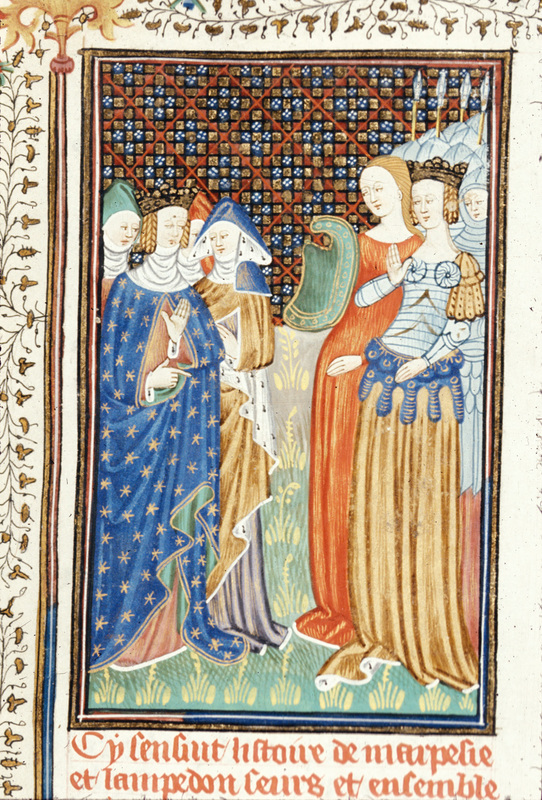 Cy sensuit listoire de marpesie
et lampedon seurs et ensemble